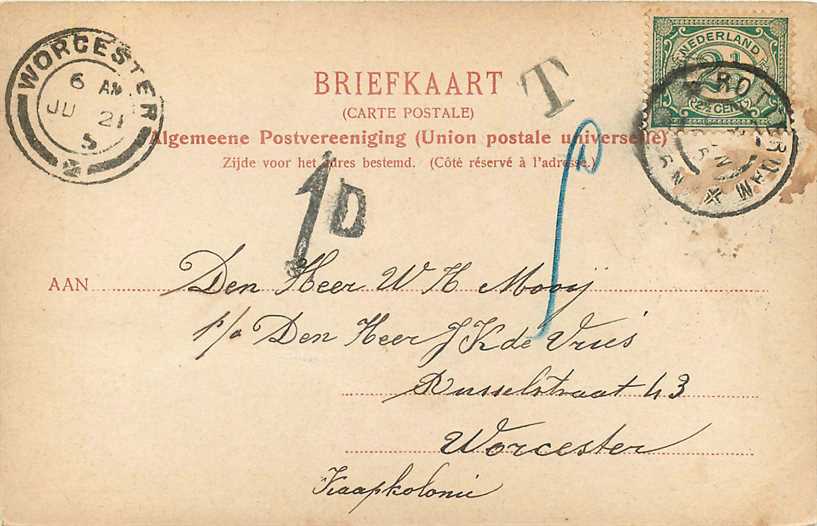 WORCESTER
6 AM
JU 21
5
BRIEFKAART
(CARTE POSTALE)
Algemeene Postvereeniging (Union postale universelle)
Zijde voor het adres bestemd. (Côté réservé à l'adresse.)
T
NEDERLAND
2½
2½ CENT
ROTTERDAM
1D
AAN Den Heer W H Mooij
p/a Den Heer J K de Vries
Russelstraat 43
Worcester
Kaapkolonie